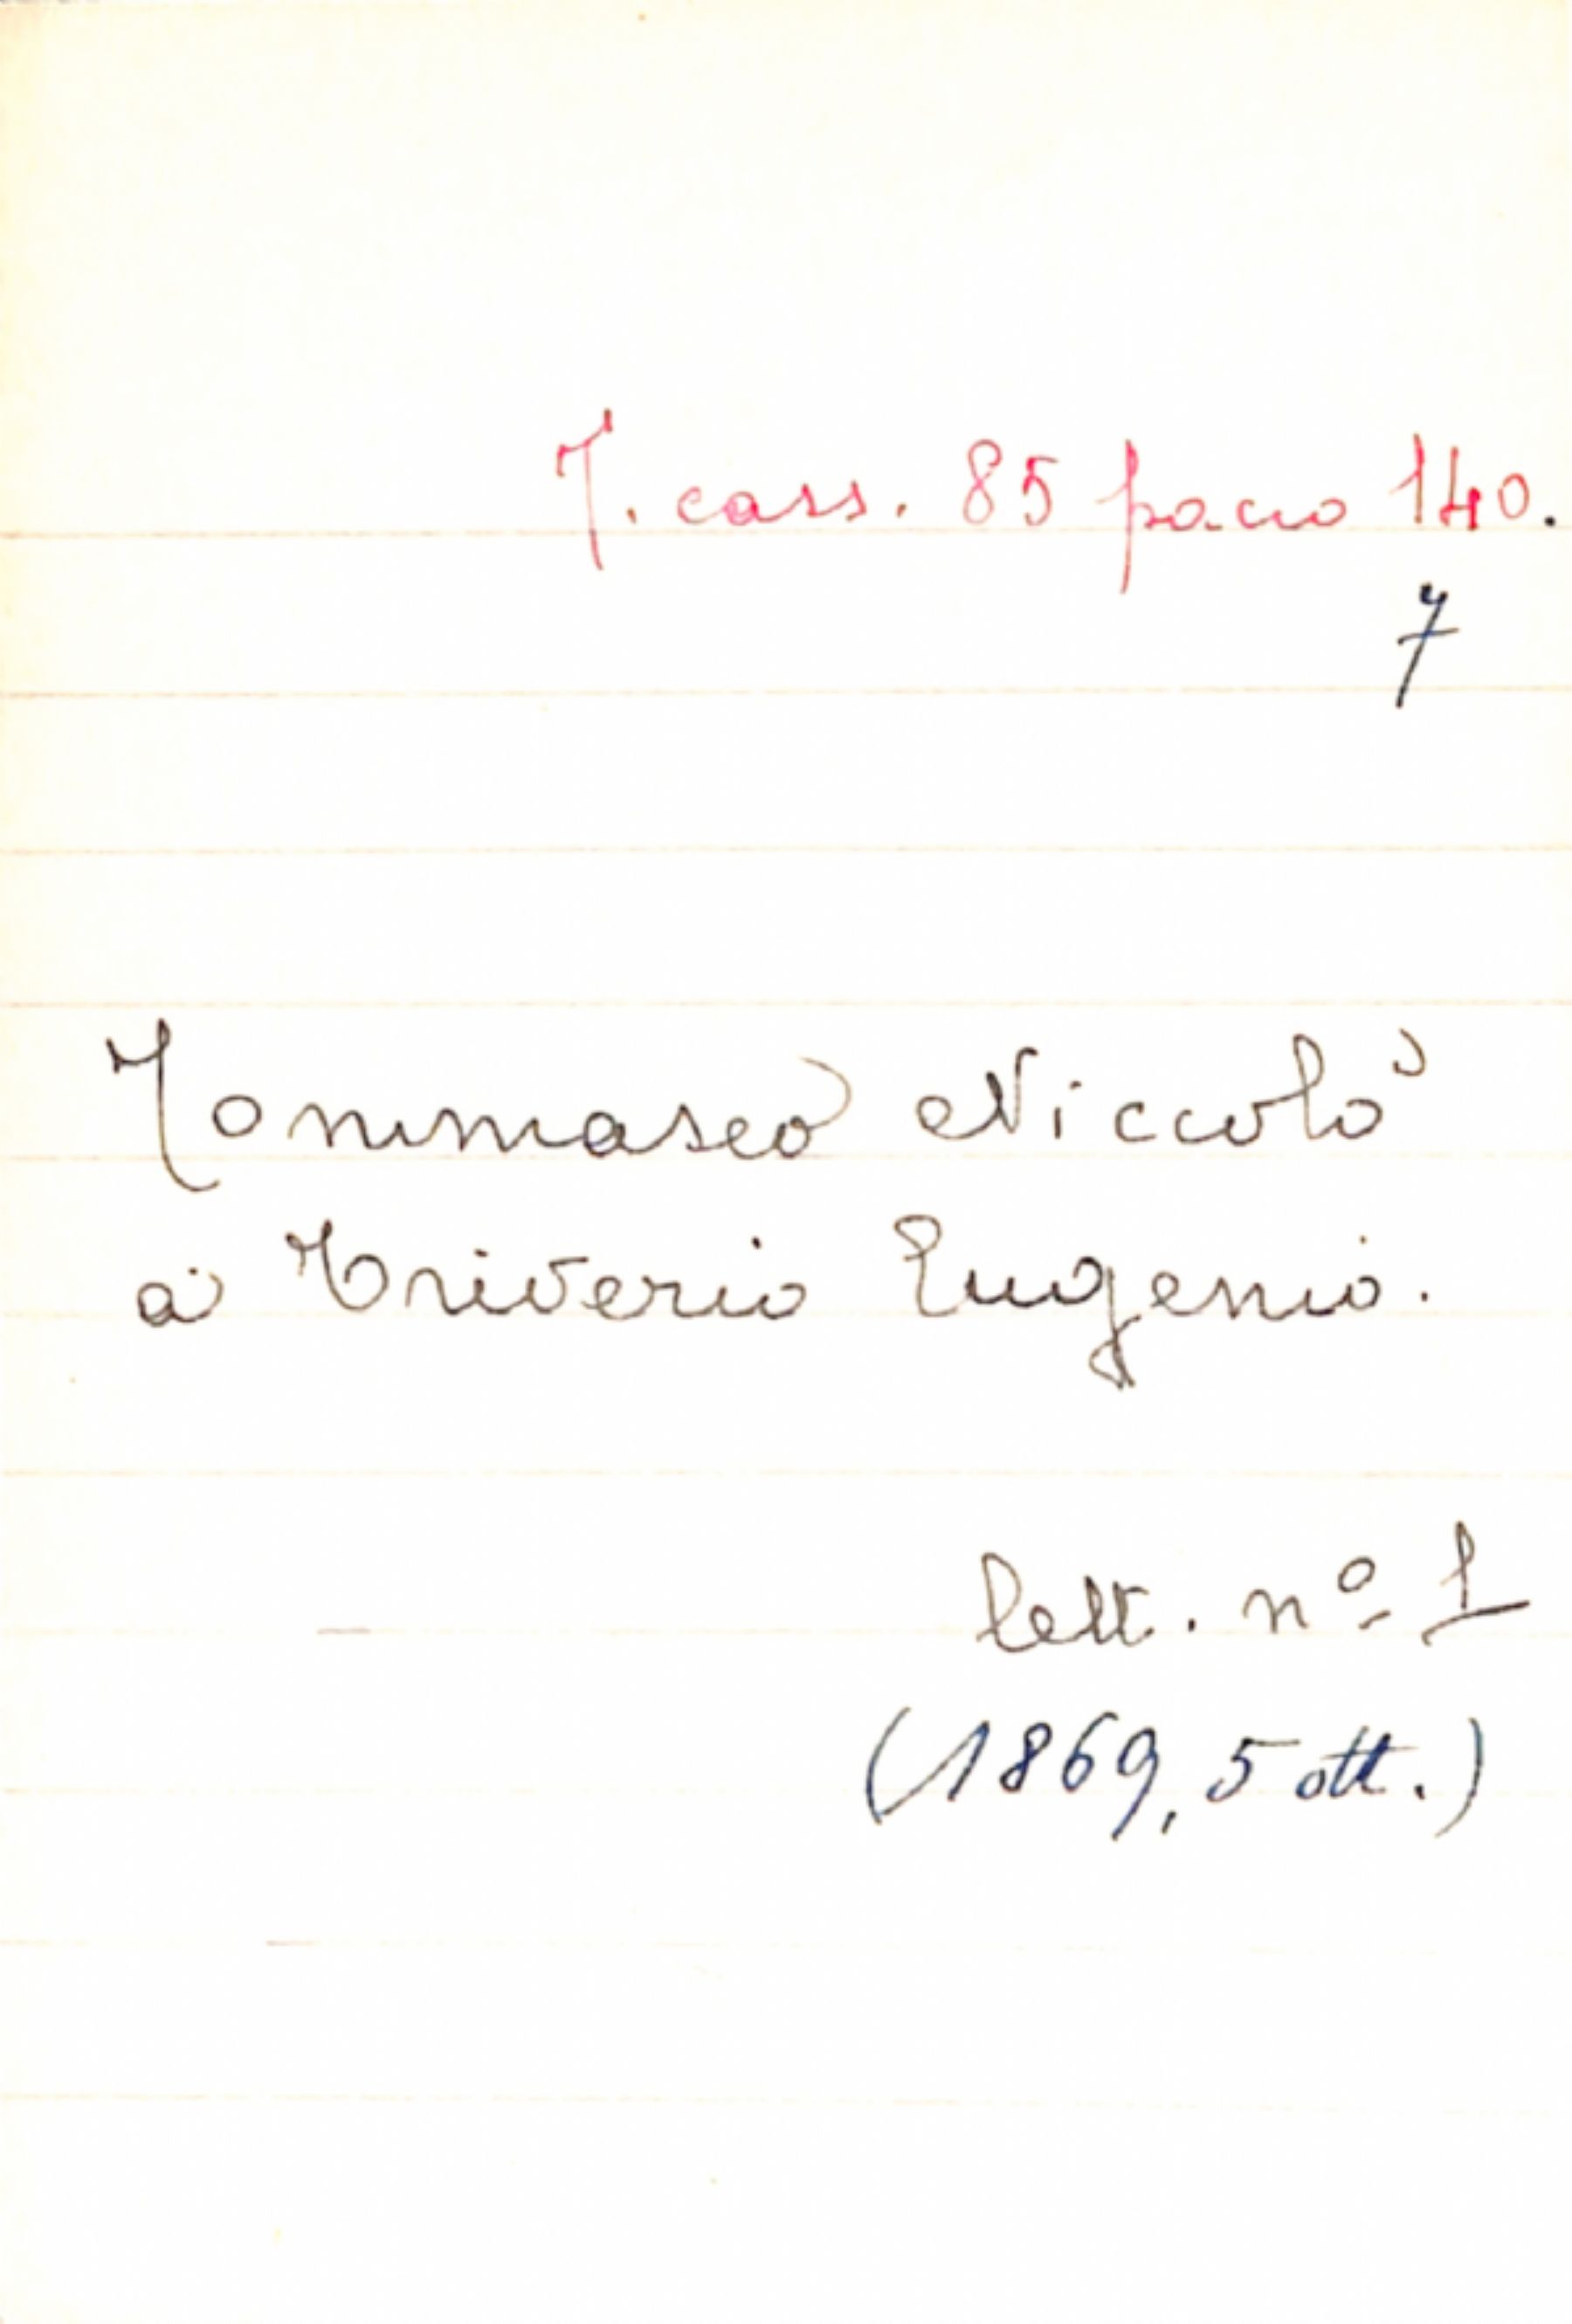 T. cass. 85 pacco 140.
7
Tommaseo Niccolò
a Triverio Eugenio.
lett. nº 1
(1869, 5 ott.)